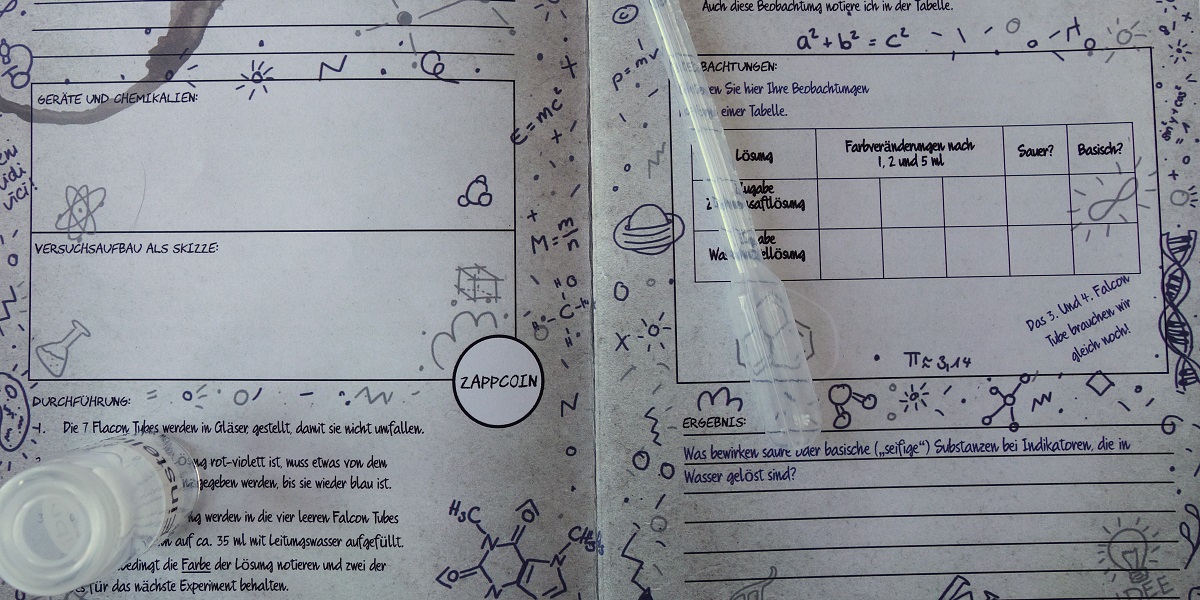 GERÄTE UND CHEMIKALIEN:
VERSUCHSAUFBAU ALS SKIZZE:
ZAPPCOIN
DURCHFÜHRUNG:
1. Die 7 Flacon Tubes werden in Gläser gestellt, damit sie nicht umfallen.
rot-violett ist, muss etwas von dem
gegeben werden, bis sie wieder blau ist.
werden in die vier leeren Falcon Tubes
auf ca. 35 ml mit Leitungswasser aufgefüllt.
die Farbe der Lösung notieren und zwei der
für das nächste Experiment behalten.
vidi
vici!
E=mc²
M=m/n
H₃C
N
O
N
O
N
Auch diese Beobachtung notiere ich in der Tabelle.
a²+b²=c²
p=mv
BACHTUNGEN:
Sie hier Ihre Beobachtungen
einer Tabelle.
Lösung
Farbveränderungen nach
1, 2 und 5 ml
Sauer?
Basisch?
Das 3. Und 4. Falcon
Tube brauchen wir
gleich noch!
π≈3,14
ERGEBNIS:
Was bewirken saure oder basische („seifige“) Substanzen bei Indikatoren, die in
Wasser gelöst sind?
IDEE